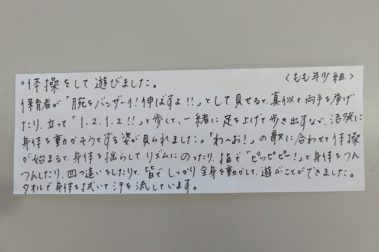 ○体操をして遊びました。 <もも年少組>
保育者が「腕をバンザーイ!伸ばすよ!!」として見せると、真似て両手を挙げ
たり、立って「1.2.1.2!!」と歩くと、一緒に足を上げて歩き出すなど、活発に
身体を動かそうとする姿が見られました。「わ〜お!」の歌に合わせて体操
が始まると、身体を揺らしてリズムにのったり、指で「ピッピッピー!」と身体をつん
つんしたり、四つ這いをしたりと、皆でしっかり全身を動かして、遊ぶことができました。
タオルで身体を拭いて汗を流しています。